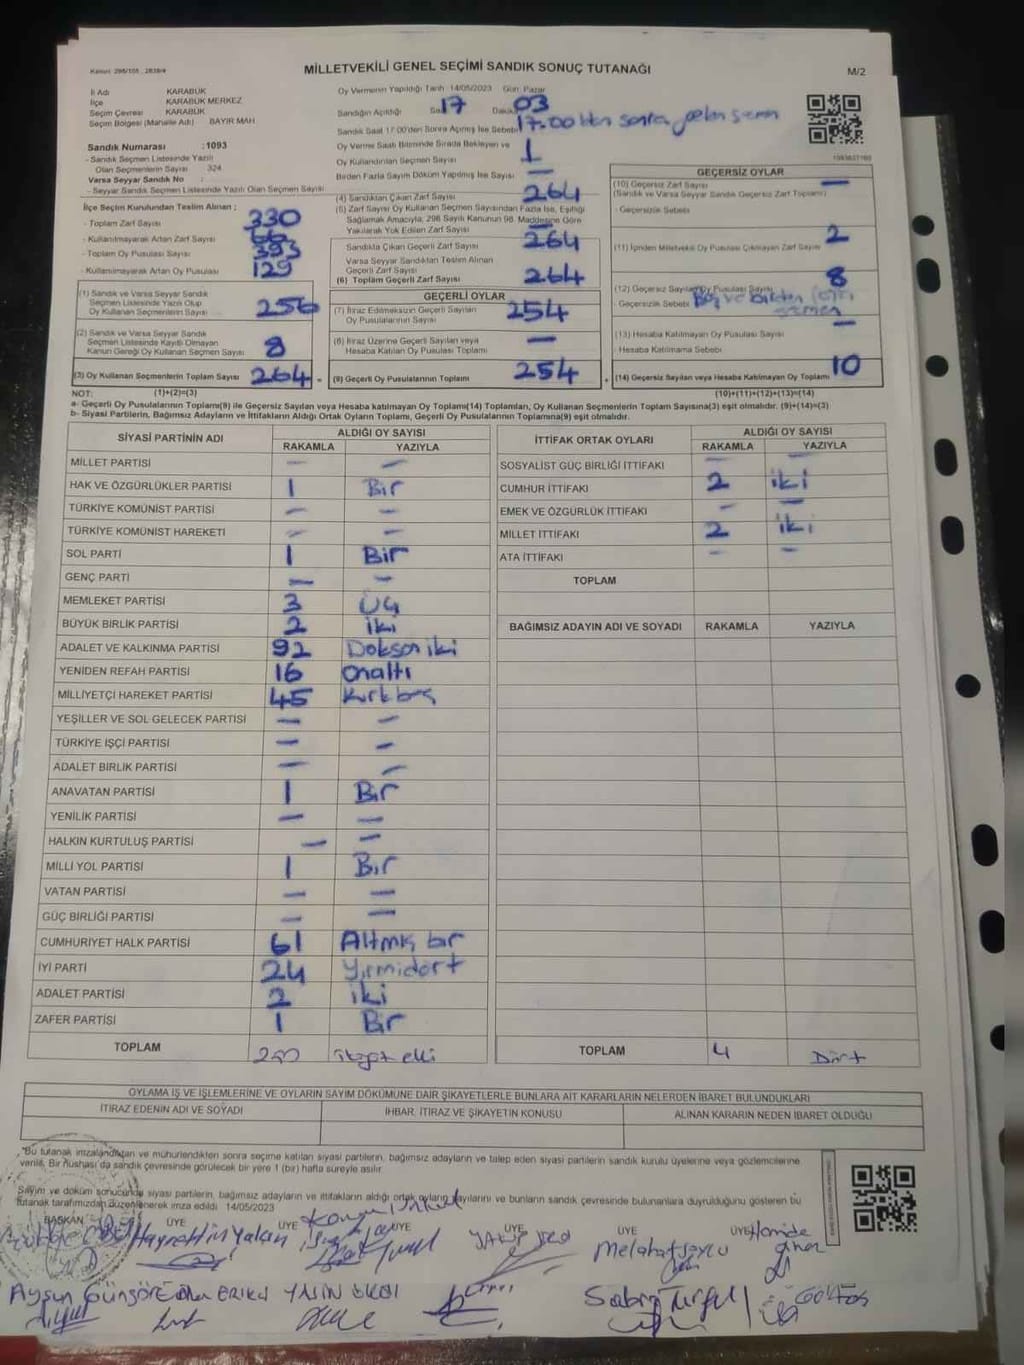 Kanun: 298/105 , 2839/4
MİLLETVEKİLİ GENEL SEÇİMİ SANDIK SONUÇ TUTANAĞI
M/2
İl Adı KARABÜK
İlçe KARABÜK MERKEZ
Seçim Çevresi KARABÜK
Seçim Bölgesi (Mahalle Adı) BAYIR MAH
Oy Vermenin Yapıldığı Tarih 14/05/2023 Gün: Pazar
Sandığın Açıldığı Saat 17 Dakika 03
Sandık Saat 17.00'den Sonra Açılmış İse Sebebi 17.00'den sonra gelen seçmen
Oy Verme Saati Bitiminde Sırada Bekleyen ve
Oy Kullandırılan Seçmen Sayısı 1
Birden Fazla Sayım Döküm Yapılmış İse Sayısı —
Sandık Numarası :1093
- Sandık Seçmen Listesinde Yazılı
Olan Seçmenlerin Sayısı 324
Varsa Seyyar Sandık No :
- Seyyar Sandık Seçmen Listesinde Yazılı Olan Seçmen Sayısı
İlçe Seçim Kurulundan Teslim Alınan ;
- Toplam Zarf Sayısı 330
- Kullanılmayarak Artan Zarf Sayısı 66
- Toplam Oy Pusulası Sayısı 393
- Kullanılmayarak Artan Oy Pusulası 129
(1) Sandık ve Varsa Seyyar Sandık
Seçmen Listesinde Yazılı Olup
Oy Kullanan Seçmenlerin Sayısı 256
(2) Sandık ve Varsa Seyyar Sandık
Seçmen Listesinde Kayıtlı Olmayan
Kanun Gereği Oy Kullanan Seçmen Sayısı 8
(3) Oy Kullanan Seçmenlerin Toplam Sayısı 264
(4) Sandıktan Çıkan Zarf Sayısı 264
(5) Zarf Sayısı Oy Kullanan Seçmen Sayısından Fazla İse, Eşitliği
Sağlamak Amacıyla, 298 Sayılı Kanunun 98. Maddesine Göre
Yakılarak Yok Edilen Zarf Sayısı —
Sandıkta Çıkan Geçerli Zarf Sayısı 264
Varsa Seyyar Sandıktan Teslim Alınan
Geçerli Zarf Sayısı
(6) Toplam Geçerli Zarf Sayısı 264
GEÇERLİ OYLAR
(7) İtiraz Edilmeksizin Geçerli Sayılan
Oy Pusulalarının Sayısı 254
(8) İtiraz Üzerine Geçerli Sayılan veya
Hesaba Katılan Oy Pusulası Toplamı —
= (9) Geçerli Oy Pusulalarının Toplamı 254
GEÇERSİZ OYLAR
(10) Geçersiz Zarf Sayısı —
(Sandık ve Varsa Seyyar Sandık Geçersiz Zarf Toplamı)
- Geçersizlik Sebebi
(11) İçinden Milletvekili Oy Pusulası Çıkmayan Zarf Sayısı 2
(12) Geçersiz Sayılan Oy Pusulası Sayısı 8
- Geçersizlik Sebebi Boş ve birden fazla seçmen
(13) Hesaba Katılmayan Oy Pusulası Sayısı —
- Hesaba Katılmama Sebebi
+ (14) Geçersiz Sayılan veya Hesaba Katılmayan Oy Toplamı 10
NOT: (1)+(2)=(3) (10)+(11)+(12)+(13)=(14)
a- Geçerli Oy Pusulaları Toplamı(9) ile Geçersiz Sayılan veya Hesaba katılmayan Oy Toplamı(14) Toplamları, Oy Kullanan Seçmenlerin Toplam Sayısına(3) eşit olmalıdır. (9)+(14)=(3)
b- Siyasi Partilerin, Bağımsız Adayların ve İttifakların Aldığı Ortak Oyların Toplamı, Geçerli Oy Pusulalarının Toplamına(9) eşit olmalıdır.
SİYASİ PARTİNİN ADI ALDIĞI OY SAYISI
RAKAMLA YAZIYLA
MİLLET PARTİSİ — —
HAK VE ÖZGÜRLÜKLER PARTİSİ 1 Bir
TÜRKİYE KOMÜNİST PARTİSİ — —
TÜRKİYE KOMÜNİST HAREKETİ — —
SOL PARTİ 1 Bir
GENÇ PARTİ — —
MEMLEKET PARTİSİ 3 Üç
BÜYÜK BİRLİK PARTİSİ 2 iki
ADALET VE KALKINMA PARTİSİ 92 Doksan iki
YENİDEN REFAH PARTİSİ 16 Onaltı
MİLLİYETÇİ HAREKET PARTİSİ 45 Kırkbeş
YEŞİLLER VE SOL GELECEK PARTİSİ — —
TÜRKİYE İŞÇİ PARTİSİ — —
ADALET BİRLİK PARTİSİ — —
ANAVATAN PARTİSİ 1 Bir
YENİLİK PARTİSİ — —
HALKIN KURTULUŞ PARTİSİ — —
MİLLİ YOL PARTİSİ 1 Bir
VATAN PARTİSİ — —
GÜÇ BİRLİĞİ PARTİSİ — —
CUMHURİYET HALK PARTİSİ 61 Altmış bir
İYİ PARTİ 24 Yirmidört
ADALET PARTİSİ 2 iki
ZAFER PARTİSİ 1 Bir
TOPLAM 250 ikiyüz elli
İTTİFAK ORTAK OYLARI ALDIĞI OY SAYISI
RAKAMLA YAZIYLA
SOSYALİST GÜÇ BİRLİĞİ İTTİFAKI — —
CUMHUR İTTİFAKI 2 iki
EMEK VE ÖZGÜRLÜK İTTİFAKI — —
MİLLET İTTİFAKI 2 iki
ATA İTTİFAKI — —
TOPLAM
BAĞIMSIZ ADAYIN ADI VE SOYADI RAKAMLA YAZIYLA
TOPLAM 4 Dört
OYLAMA İŞ VE İŞLEMLERİNE VE OYLARIN SAYIM DÖKÜMÜNE DAİR ŞİKAYETLERLE BUNLARA AİT KARARLARIN NELERDEN İBARET BULUNDUKLARI
İTİRAZ EDENİN ADI VE SOYADI İHBAR, İTİRAZ VE ŞİKAYETİN KONUSU ALINAN KARARIN NEDEN İBARET OLDUĞU
"Bu tutanak imzalandıktan ve mühürlendikten sonra seçime katılan siyasi partilerin, bağımsız adayların ve talep eden siyasi partilerin sandık kurulu üyelerine veya gözlemcilerine
verilir. Bir nüshası da sandık çevresinde görülecek bir yere 1 (bir) hafta süreyle asılır.
Sayım ve döküm sonucunda siyasi partilerin, bağımsız adayların ve ittifakların aldığı ortak oyların sayılarını ve bunların sandık çevresinde bulunanlara duyrulduğunu gösteren bu
tutanak tarafımızdan düzenlenerek imza edildi. 14/05/2023
BAŞKAN ÜYE ÜYE ÜYE ÜYE ÜYE ÜYE
Hayrettin Yalçın
Melahat Soylu
Hamide
Aysun Güngör YASİN
Sabri